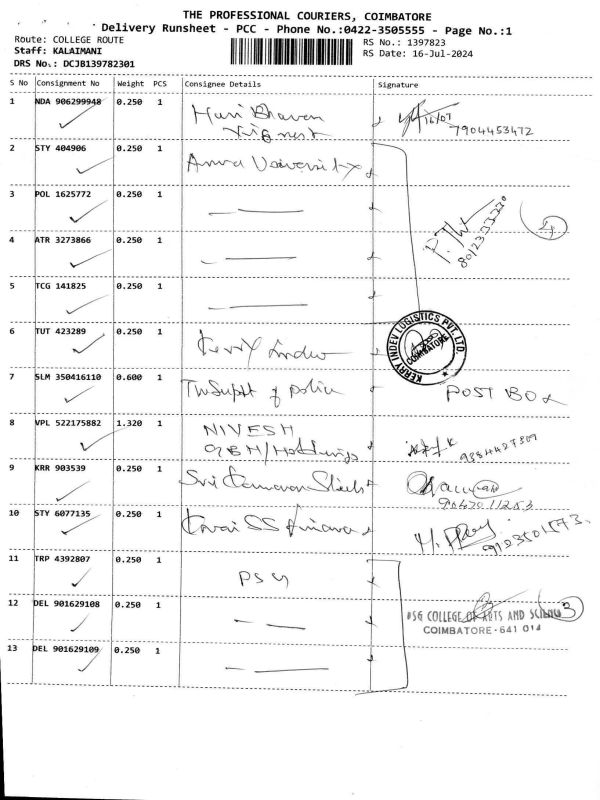 THE PROFESSIONAL COURIERS, COIMBATORE
Delivery Runsheet - PCC - Phone No.:0422-3505555 - Page No.:1
Route: COLLEGE ROUTE
RS No.: 1397823
Staff: KALAIMANI
RS Date: 16-Jul-2024
DRS No.: DCJB139782301
S No Consignment No Weight PCS Consignee Details Signature
1 NDA 906299948 0.250 1 Hari Bhavan 16/07
7904453472
2 STY 404906 0.250 1 Anna University
3 POL 1625772 0.250 1
4 ATR 3273866 0.250 1
4
5 TCG 141825 0.250 1
6 TUT 423289 0.250 1 KERRY INDEV LOGISTICS PVT. LTD. COIMBATORE
7 SLM 350416110 0.600 1 The Supdt of police POST BOX
8 VPL 522175882 1.320 1 NIVESH
9384427309
9 KRR 903539 0.250 1 Sri
10 STY 6077135 0.250 1 Kovai SS finance
9123501573
11 TRP 4392807 0.250 1 PSG
12 DEL 901629108 0.250 1 PSG COLLEGE OF ARTS AND SCIENCE 3
COIMBATORE - 641 014
13 DEL 901629109 0.250 1